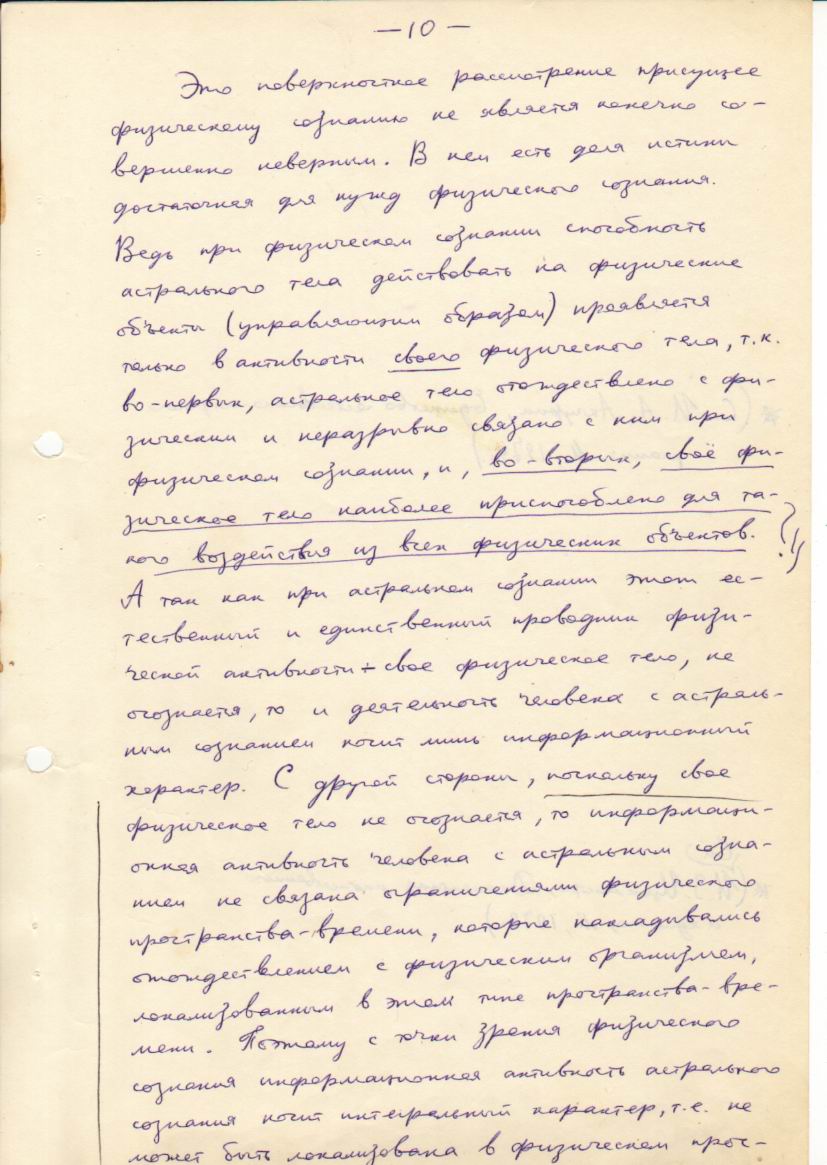 — 10 —
Это поверхностное рассмотрение присущее
физическому сознанию не является конечно со-
вершенно неверным. В нем есть доля истины
достаточная для нужд физического сознания.
Ведь при физическом сознании способность
астрального тела действовать на физические
объекты (управляющим образом) проявляется
только в активности своего физического тела, т.к.
во-первых, астральное тело отождествлено с фи-
зическим и неразрывно связано с ним при
физическом сознании, и, во-вторых, своё фи-
зическое тело наиболее приспособлено для та-
кого воздействия из всех физических объектов. ?!
А так как при астральном сознании этот ес-
тественный и единственный проводник физи-
ческой активности – свое физическое тело, не
осознается, то и деятельность человека с астраль-
ным сознанием носит лишь информационный
характер. С другой стороны, поскольку свое
физическое тело не осознается, то информаци-
онная активность человека с астральным созна-
нием не связана ограничениями физического
пространства-времени, которые накладывались
отождествлением с физическим организмом,
локализованным в этом типе пространства-вре-
мени. Поэтому с точки зрения физического
сознания информационная активность астрального
сознания носит интегральный характер, т.е. не
может быть локализована в физическом прос-